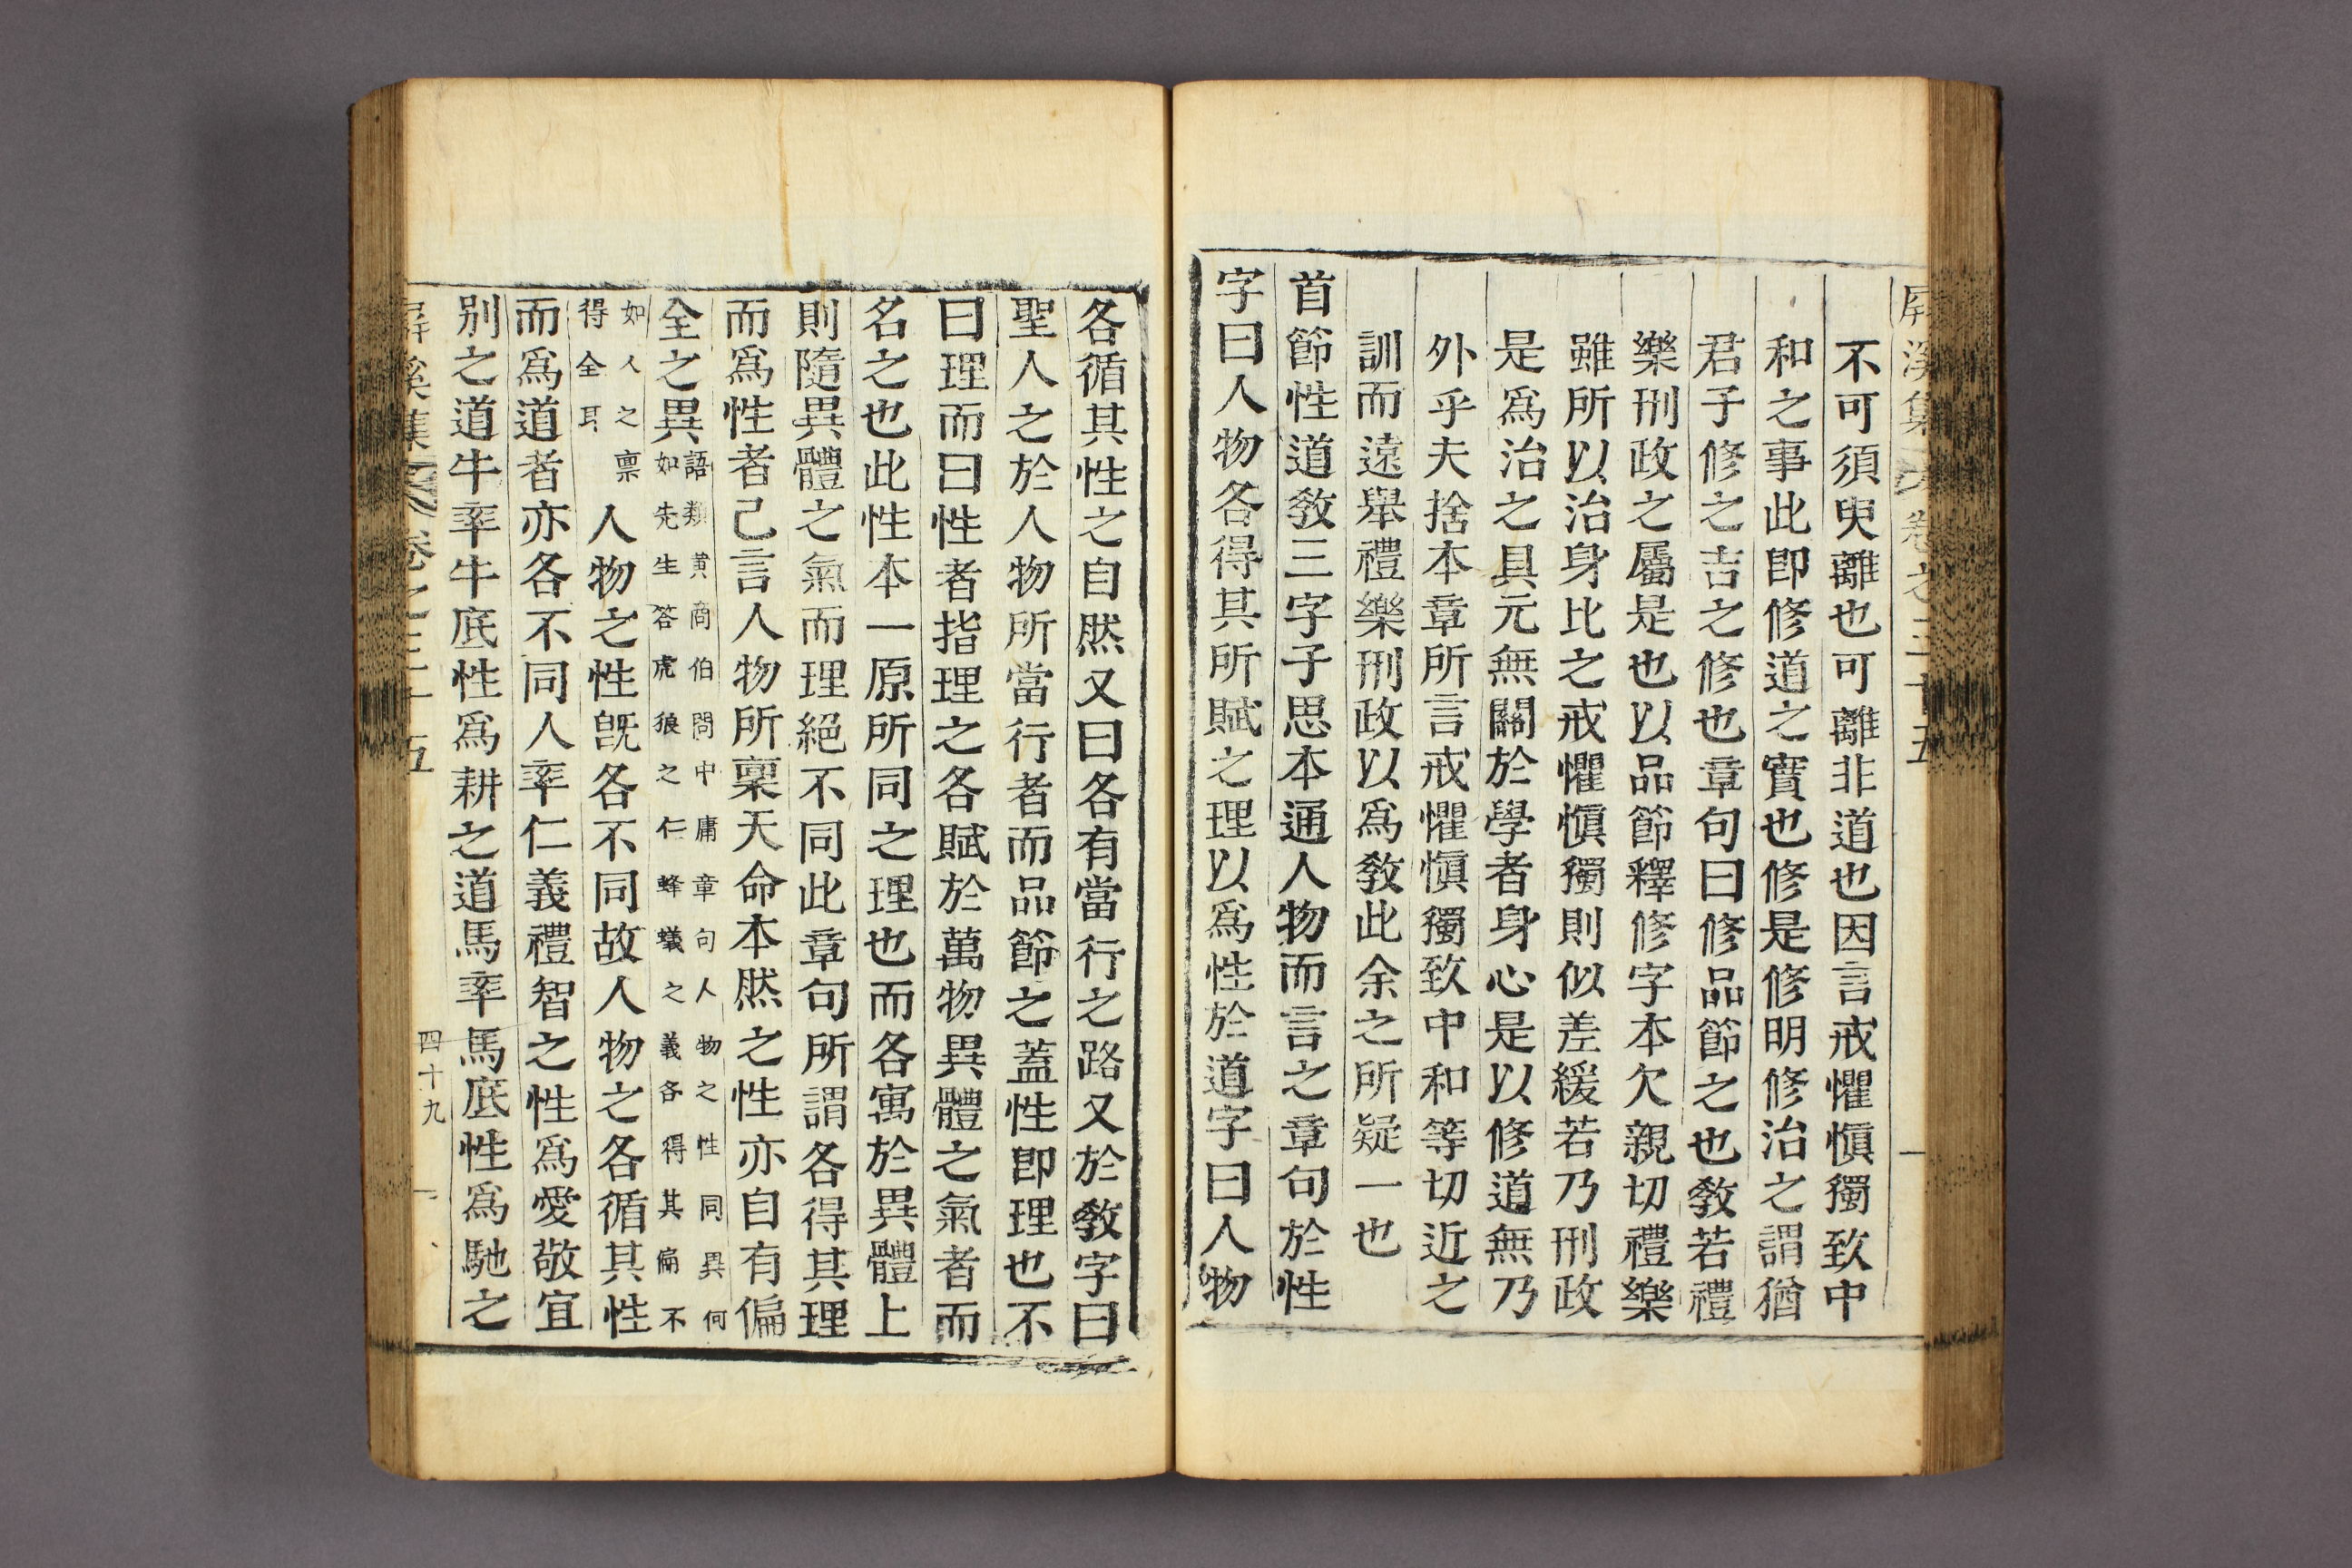 屛溪集 卷之三十五
不可須臾離也可離非道也因言戒懼愼獨致中
和之事此卽修道之實也修是修明修治之謂猶
君子修之吉之修也章句曰修品節之也敎若禮
樂刑政之屬是也以品節釋修字本欠親切禮樂
雖所以治身比之戒懼愼獨則似差緩若乃刑政
是爲治之具元無關於學者身心是以修道無乃
外乎夫捨本章所言戒懼愼獨致中和等切近之
訓而遠舉禮樂刑政以爲敎此余之所疑一也
首節性道敎三字子思本通人物而言之章句於性
字曰人物各得其所賦之理以爲性於道字曰人物
各循其性之自然又曰各有當行之路又於敎字曰
聖人之於人物所當行者而品節之蓋性卽理也不
曰理而曰性者指理之各賦於萬物異體之氣者而
名之也此性本一原所同之理也而各寓於異體上
則隨異體之氣而理絕不同此章句所謂各得其理
而爲性者已言人物所稟天命本然之性亦自有偏
全之異語類黃商伯問中庸章句人物之性同異何
如先生答虎狼之仁蜂蟻之義各得其偏不
如人之稟
得全耳
人物之性旣各不同故人物之各循其性
而爲道者亦各不同人率仁義禮智之性爲愛敬宜
別之道牛率牛底性爲耕之道馬率馬底性爲馳之
屛溪集 卷之三十五 四十九